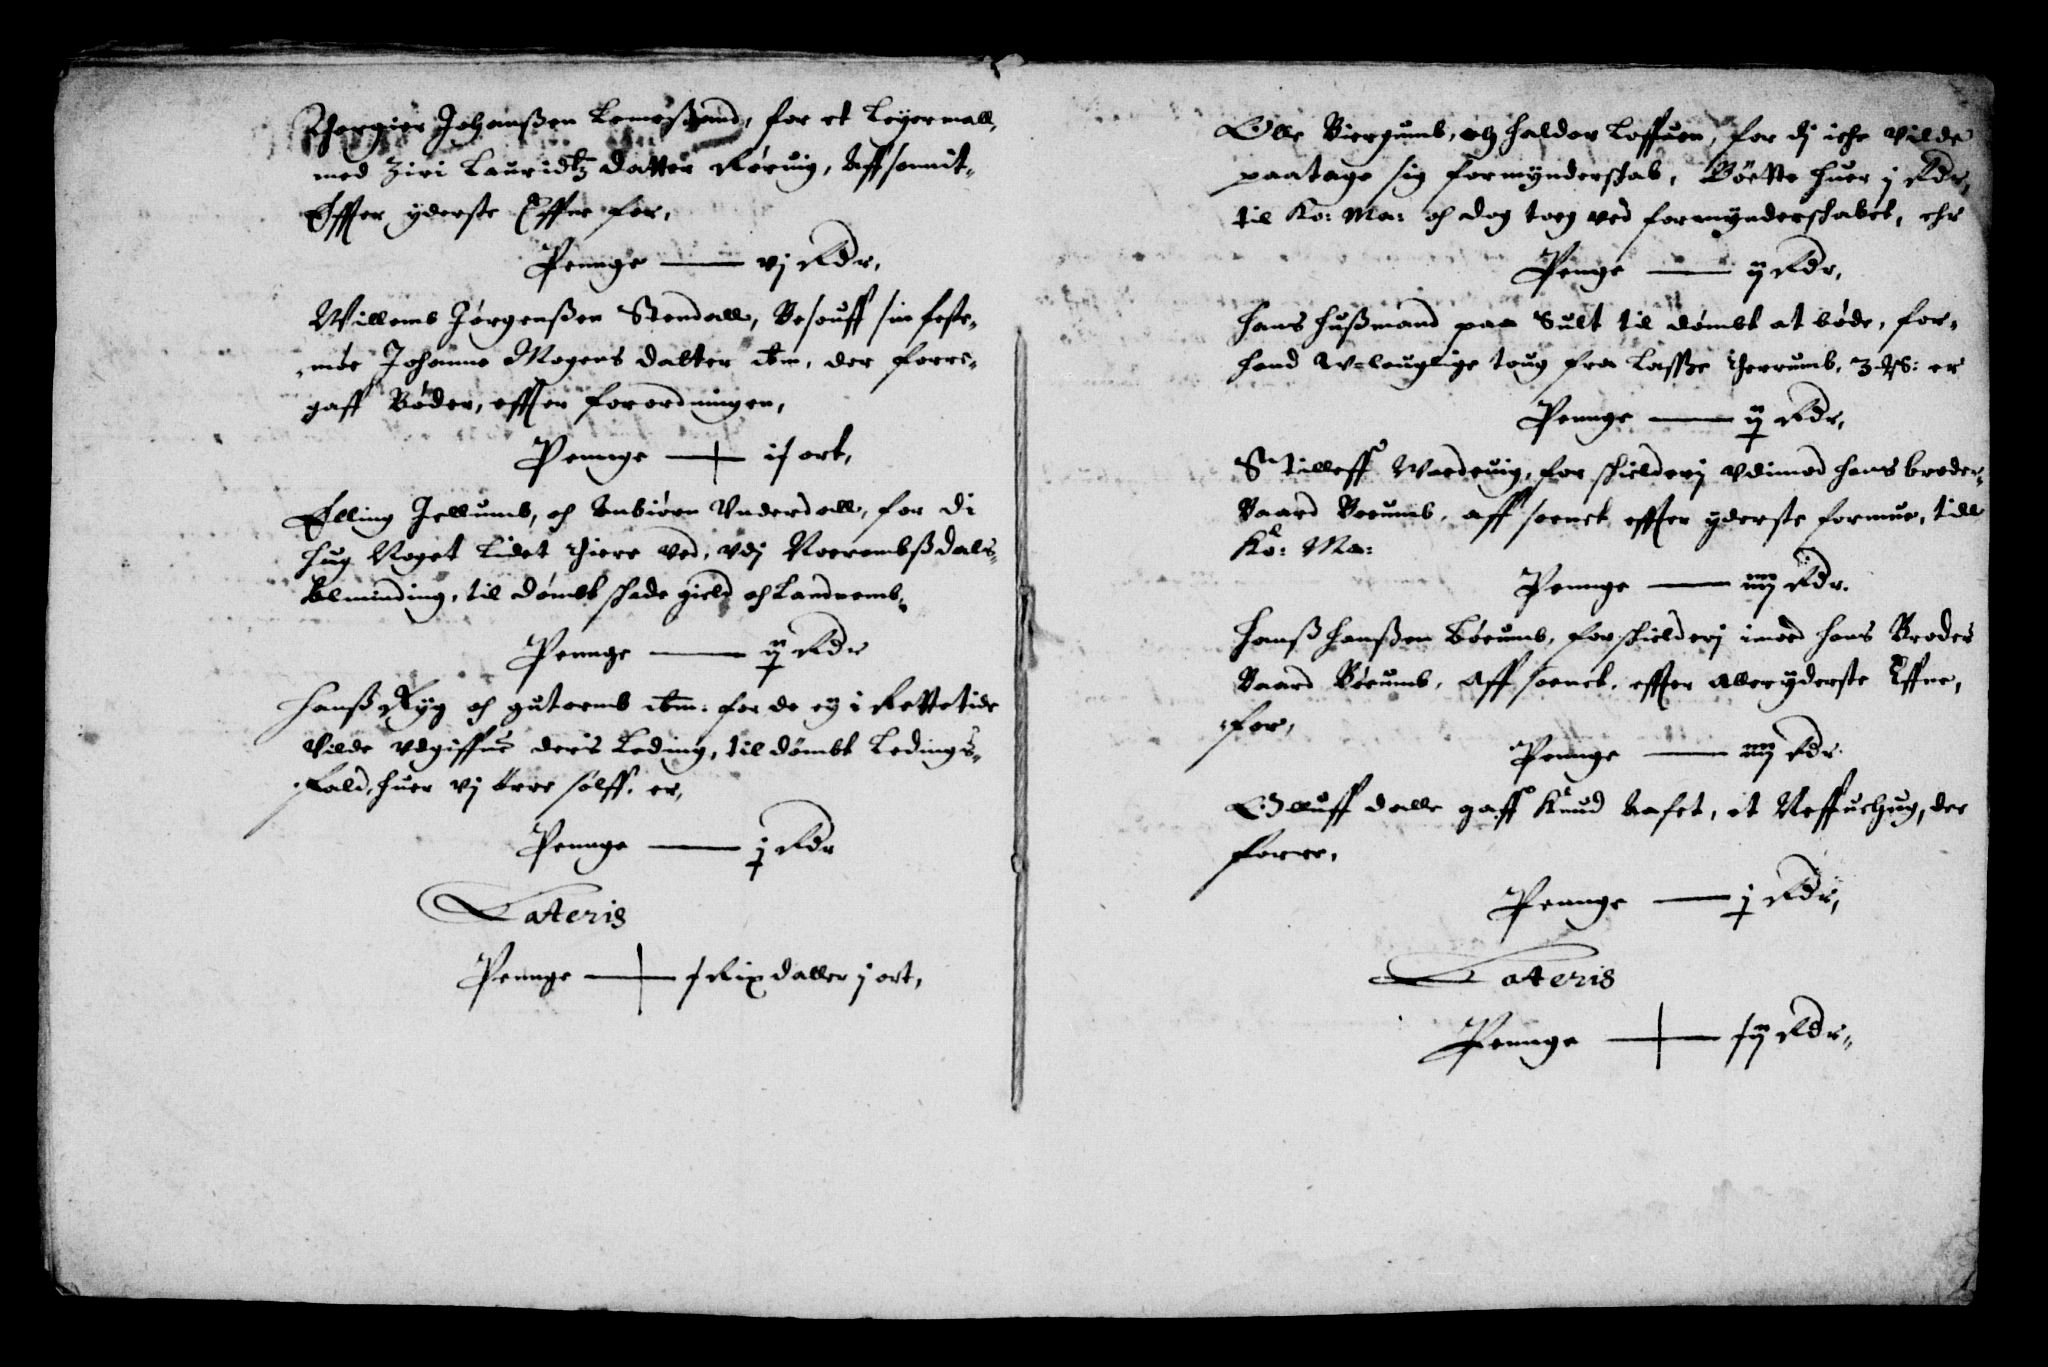 Thorgier Johanßen Lemestrand, for et Leyermall,
med Ziri Lauridtz datter Rørvig, Affsonit,
Effter yderste Effne for,
Pennge —— vj Rdr,
Willemb Jørgenßen Stendall, Besouff sin feste-
møe Johanne Mogens datter ibm, der forre
gaff Bøder, effter forordningen,
Pennge —— i½ ort,
Elling Jellumb, och Anbiørn Underdall, for di
hug Noget Lidet Thiere Ved, udj Noerembßdals
Alminding, til dømbt schade gield och Landnemb,
Pennge —— ij Rdr
Hanß Ryg och gutormb ibm: for de ej i Rettetide
Vilde udgiffue deris Leding, til dømbt Ledings-
fald, huer vj ørre sølff, er,
Pennge —— j Rdr
Lateris
Pennge —— Rixdaller j ort,
Olle Biergumb, och Haldor Loffuen, for dj iche Vilde
paatage sig formynderschab, Bøtte huer j Rdr,
til Ko: Ma: och dog toeg ved formynderschabet, ehr
Pennge —— ij Rdr,
Hans Hußmand paa Sult til dømbt at bøde, for
hand Uv-lauglige toug fra Lasße Therrumb, er
Pennge —— ij Rdr,
Stilleff Wardeuig, for schielderj udimod hans broder
Baard Boeumb, aff soenet effter yderste formue, till
Ko: Ma:
Pennge —— iiij Rdr.
Hanß Hanßen Bøeumb, for schielderj imoed hans Broder
Baard Bøeumb, Aff soenet, effter Alleryderste Effne,
for,
Pennge —— iiij Rdr.
Olluff dalle gaff Knud Aafet, et Neffuehug, der
forre,
Pennge —— j Rdr,
Lateris
Pennge —— Rdr